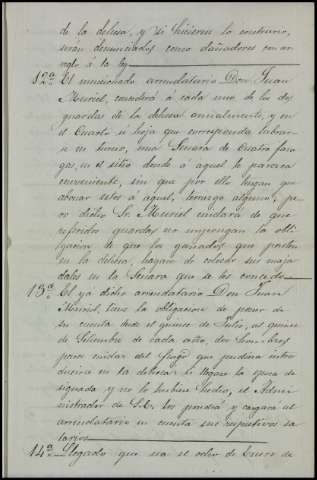 de la dehesa, y si hicieren lo contrario,
seran denunciados como dañadores con ar
reglo á la ley
12ª El mencionado arrendatario Don Juan
Muriel, concederá á cada uno de los dos
guardas de la dehesa anualmente, y en
el Cuarto ú hoja que corresponda labrar
se en turno, una Senara de Cuatro fane
gas, en el sitio donde á aquel le parezca
conveniente, sin que por ello tengan que
abonar estos á aquel, terrazgo alguno, pe
ro dicho Sr. Muriel cuidará de que
referidos guardas no impongan la obli
gacion de que los ganados que pasten
en la dehesa, hayan de colocar sus maja
dales en la Senara que se les concede
13ª El ya dicho arrendatario Don Juan
Muriel, tiene la obligacion de poner de
su cuenta desde el quince de Julio, al quince
de Setiembre de cada año, dos hombres
para cuidar del fuego que pudiera intro
ducirse en la dehesa: si llegara la epoca de
signada y no lo hubiere hecho, el Admi
nistrador de S.E. los pondrá y cargará al
arrendatario en cuenta sus respectivos sa
larios
14ª Llegado que sea el ocho de Enero de